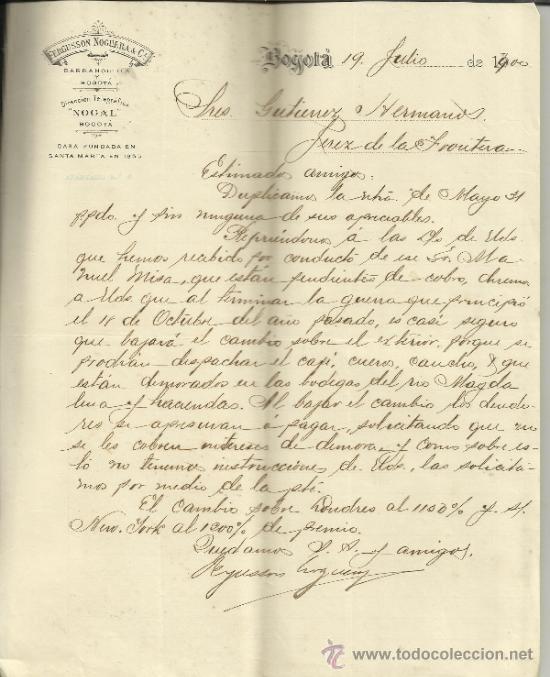 FERGUSSON NOGUERA & Cª.
BARRANQUILLA
Y
BOGOTÁ
Dirección Telegráfica
"NOGAL"
BOGOTÁ
CASA FUNDADA EN
SANTA MARTA EN 1855
Bogotá 19 Julio de 1900
Sres. Gutierrez Hermanos.
Jerez de la Frontera
Estimados amigos:
Duplicamos la ntra. de Mayo 31
ppdo. y sin ninguna de sus apreciables.
Refiriéndonos á las de Uds.
que hemos recibido por conducto de ese Sr. Ma
nuel Misa, que están pendientes de cobro, diremos
a Uds. que al terminar la guerra que principió
el 18 de Octubre del año pasado, es casi seguro
que bajará el cambio sobre el exterior, porque se
podrán despachar el café, cueros, caucho, & que
están demorados en las bodegas del rio Magda
lena y haciendas. Al bajar el cambio los deudo
res se apresuran á pagar, solicitando que no
se les cobren intereses de demora y como sobre es
to no tenemos instrucciones de Uds., las solicita
mos por medio de la pte.
El cambio sobre Londres al 1150% y s/.
New York al 1200% de premio.
Quedamos S. A. y amigos.
Fergusson Noguera
todocoleccion
www.todocoleccion.net